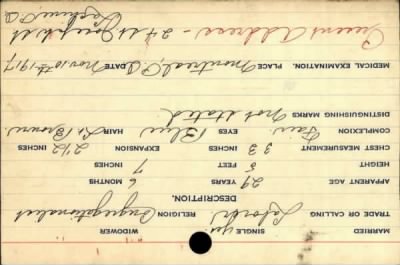 MARRIED SINGLE yes. WIDOWER
TRADE OR CALLING Laborer. RELIGION Congregationalist
DESCRIPTION.
APPARENT AGE 29 YEARS 6 MONTHS
HEIGHT 5 FEET 7 INCHES
CHEST MEASUREMENT 33 INCHES EXPANSION 2 1/2 INCHES
COMPLEXION Fair EYES Blue HAIR Lt Brown
DISTINGUISHING MARKS not stated
MEDICAL EXAMINATION. PLACE Montreal, P.Q. DATE Nov. 10th 1917
Present Address - 24 St. Joseph St
Lachine P.Q.